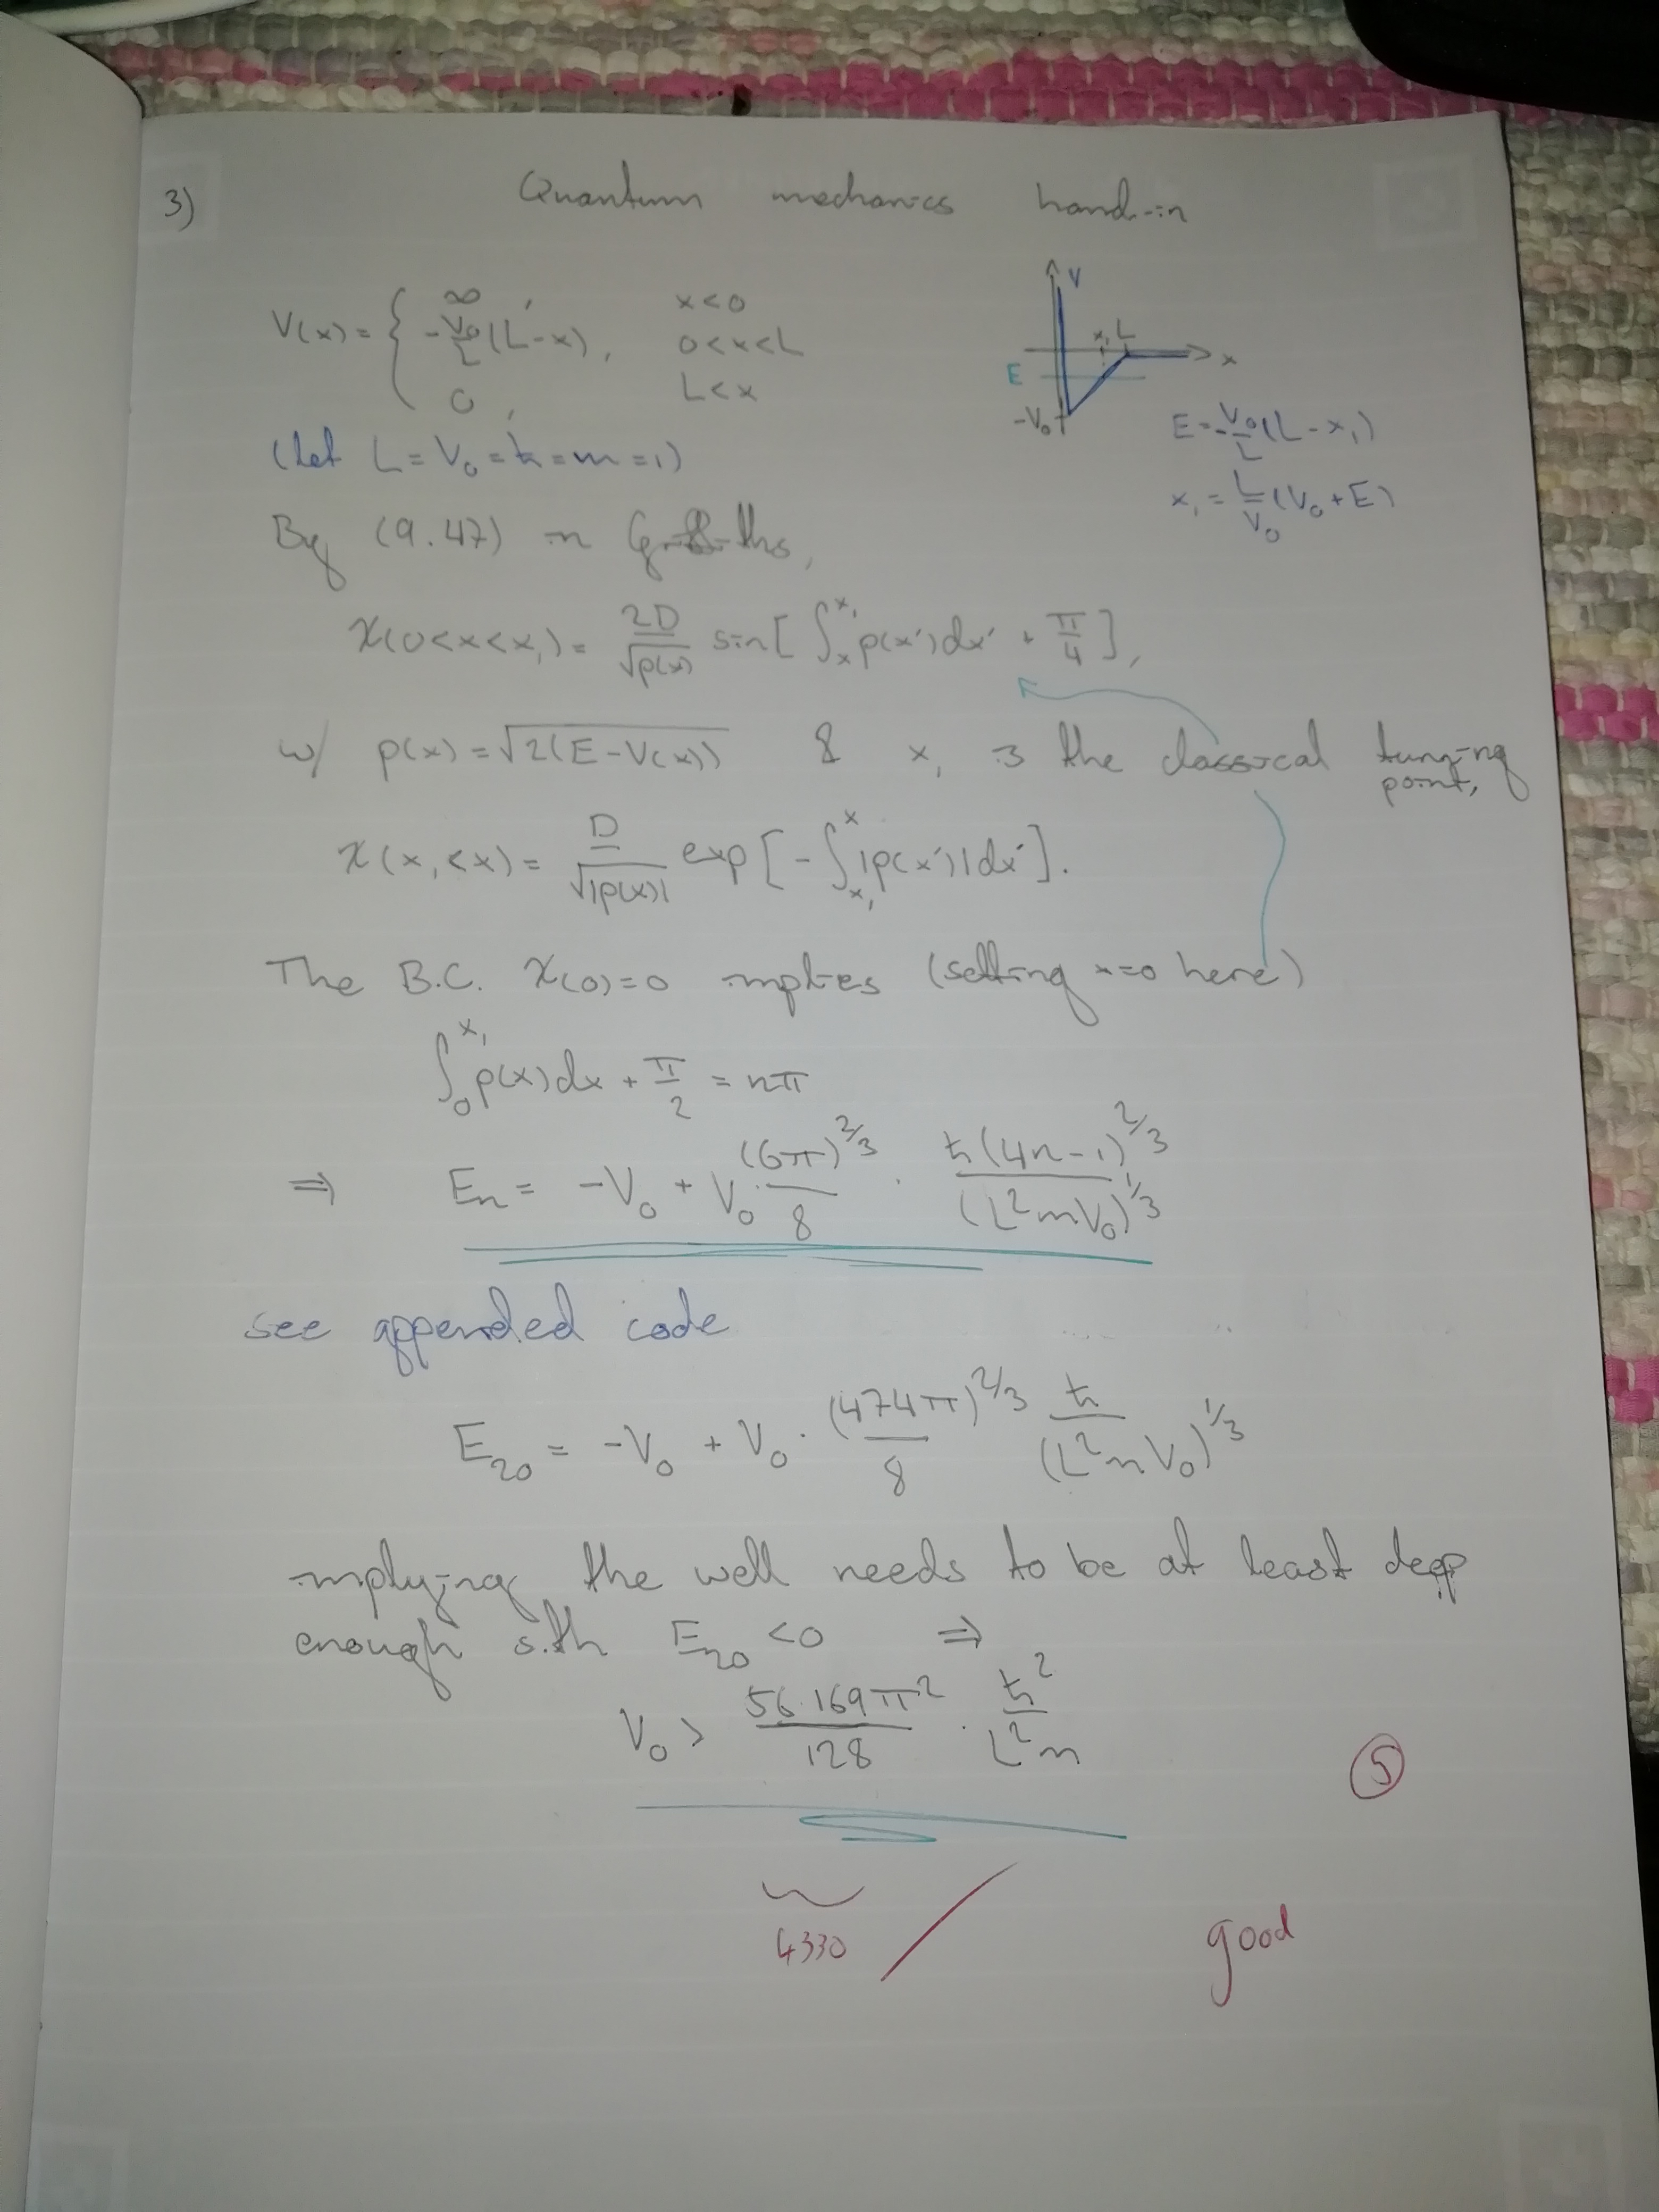 3)
Quantum mechanics hand-in
V(x) = { ∞, x<0
-V₀/L (L-x), 0<x<L
0, L<x
V
x₁ L
x
E
-V₀
E = -V₀/L (L-x₁)
x₁ = L/V₀ (V₀+E)
(Let L = V₀ = ħ = m = 1)
By (9.47) in Griffiths,
χ(0<x<x₁) = 2D/√p(x) sin[ ∫ₓ^x₁ p(x')dx' + π/4 ],
w/ p(x) = √2(E-V(x)) & x₁ is the classical turning point,
χ(x₁<x) = D/√|p(x)| exp[ - ∫ₓ₁^x |p(x')|dx' ].
The B.C. χ(0)=0 implies (setting x=0 here)
∫₀^x₁ p(x)dx + π/2 = nπ
⇒ Eₙ = -V₀ + V₀ · (6π)^2/3 / 8 · ħ(4n-1)^2/3 / (L²mV₀)^1/3
see appended code
E₂₀ = -V₀ + V₀ · (474π)^2/3 / 8 ħ / (L²mV₀)^1/3
implying the well needs to be at least deep
enough s.th E₂₀ <0 ⇒
V₀ > 56·169π² / 128 · ħ² / L²m
5
4330
good